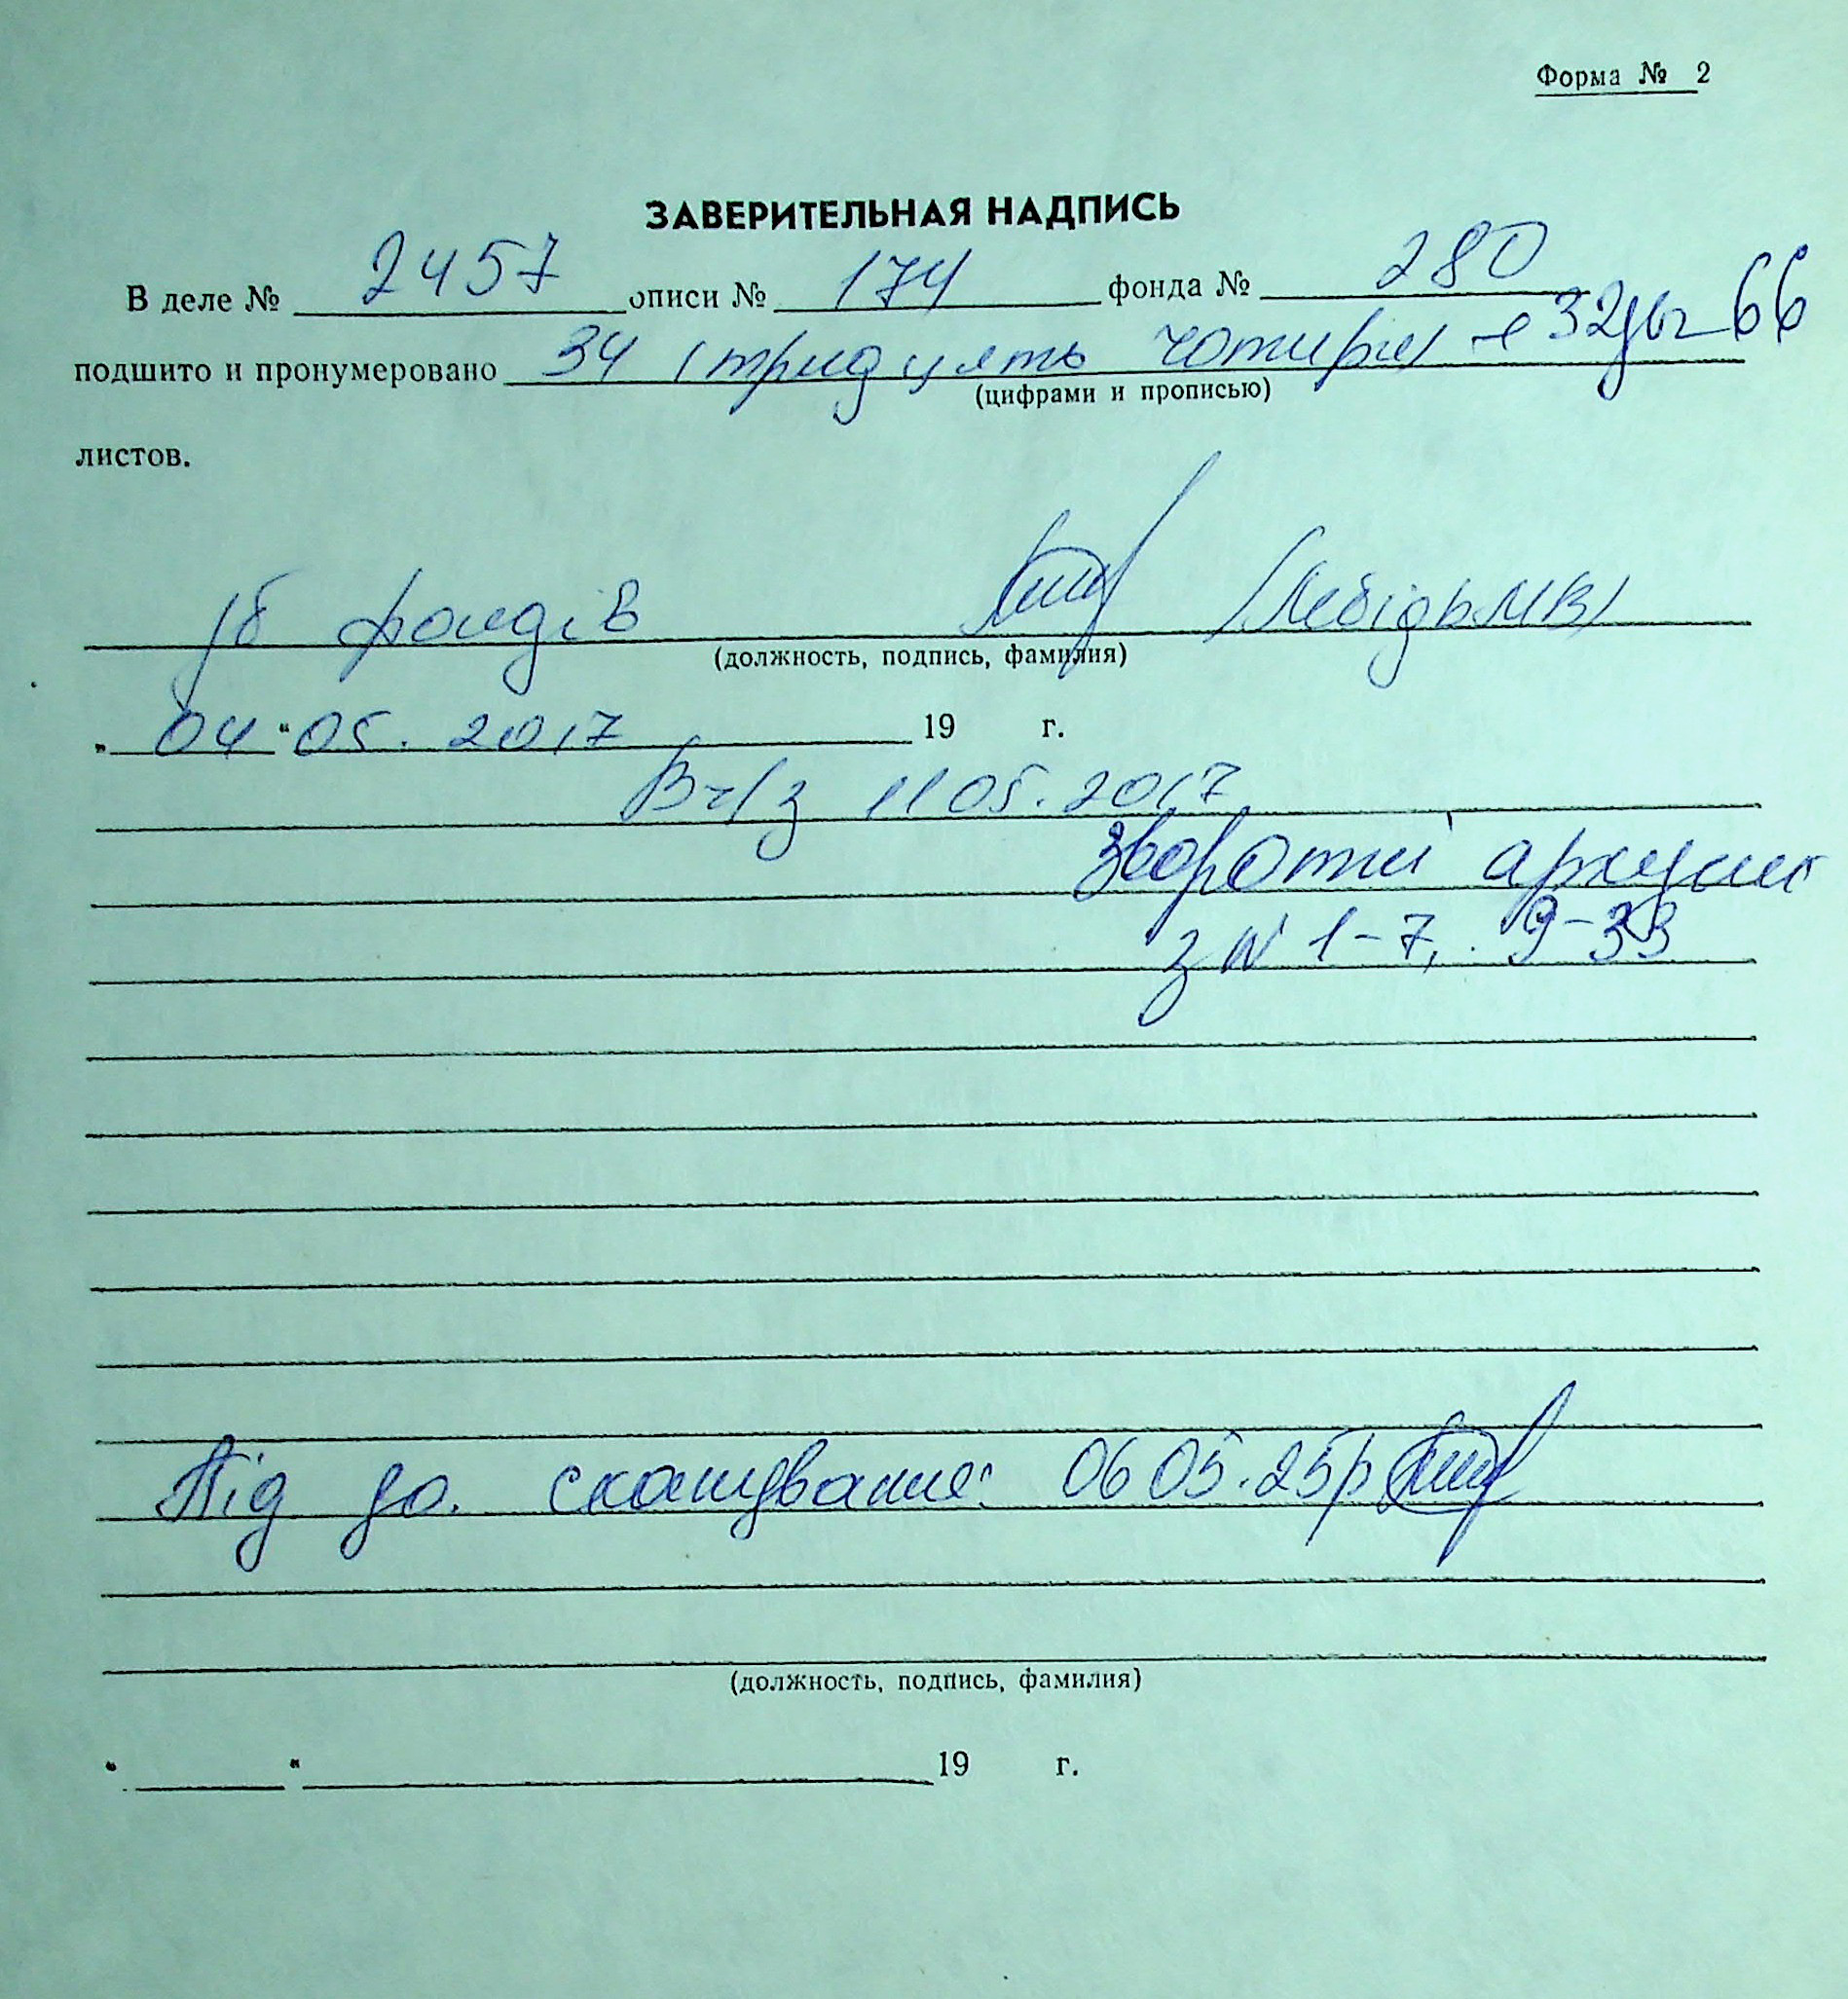 Форма № 2
ЗАВЕРИТЕЛЬНАЯ НАДПИСЬ
В деле № 2457 описи № 174 фонда № 280
подшито и пронумеровано 34 (тридцять чотири) 32 66
(цифрами и прописью)
листов.
фондів /Лебідь МВ/
(должность, подпись, фамилия)
„ 04 “ 05. 2017 19 г.
11 05. 2017
зворотні аркуши
з N 1-7, 9-33
Під до сканування: 06 05. 25р
(должность, подпись, фамилия)
“ “ 19 г.